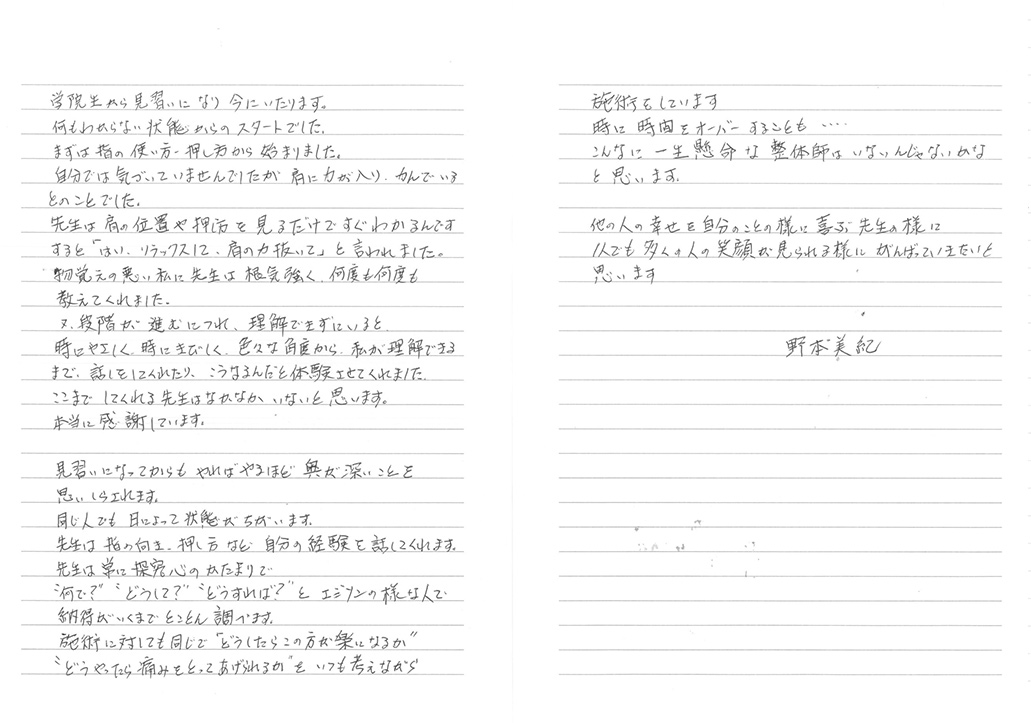 学院生から見習いになり今にいたります。
何もわからない状態からのスタートでした。
まずは指の使い方・押し方から始まりました。
自分では気づいていませんでしたが肩に力が入り、力んでいる
とのことでした。
先生は肩の位置や押し方を見るだけですぐわかるんです
すると「はい、リラックスして、肩の力抜いて」と言われました。
物覚えの悪い私に先生は根気強く、何度も何度も
教えてくれました。
又、段階が進むにつれ、理解できずにいると、
時にやさしく、時にきびしく、色々な角度から、私が理解できる
まで、話しをしてくれたり、こうなるんだと体験させてくれました。
ここまでしてくれる先生はなかなかいないと思います。
本当に感謝しています。
見習いになってからもやればやるほど奥が深いことを
思いしらされます。
同じ人でも日によって状態がちがいます。
先生は指の向き、押し方など自分の経験を話してくれます。
先生は常に探究心のかたまりで
"何で?" "どうして?" "どうすれば?"とエジソンの様な人で
納得がいくまでとことん調べます。
施術に対しても同じで"どうしたらこの方が楽になるか"
"どうやったら痛みをとってあげられるか"をいつも考えながら
施術をしています
時に時間をオーバーすることも‥‥
こんなに一生懸命な整体師はいないんじゃないかな
と思います。
他の人の幸せを自分のことの様に喜ぶ先生の様に
1人でも多くの人の笑顔が見られる様にがんばっていきたいと
思います
野本美紀